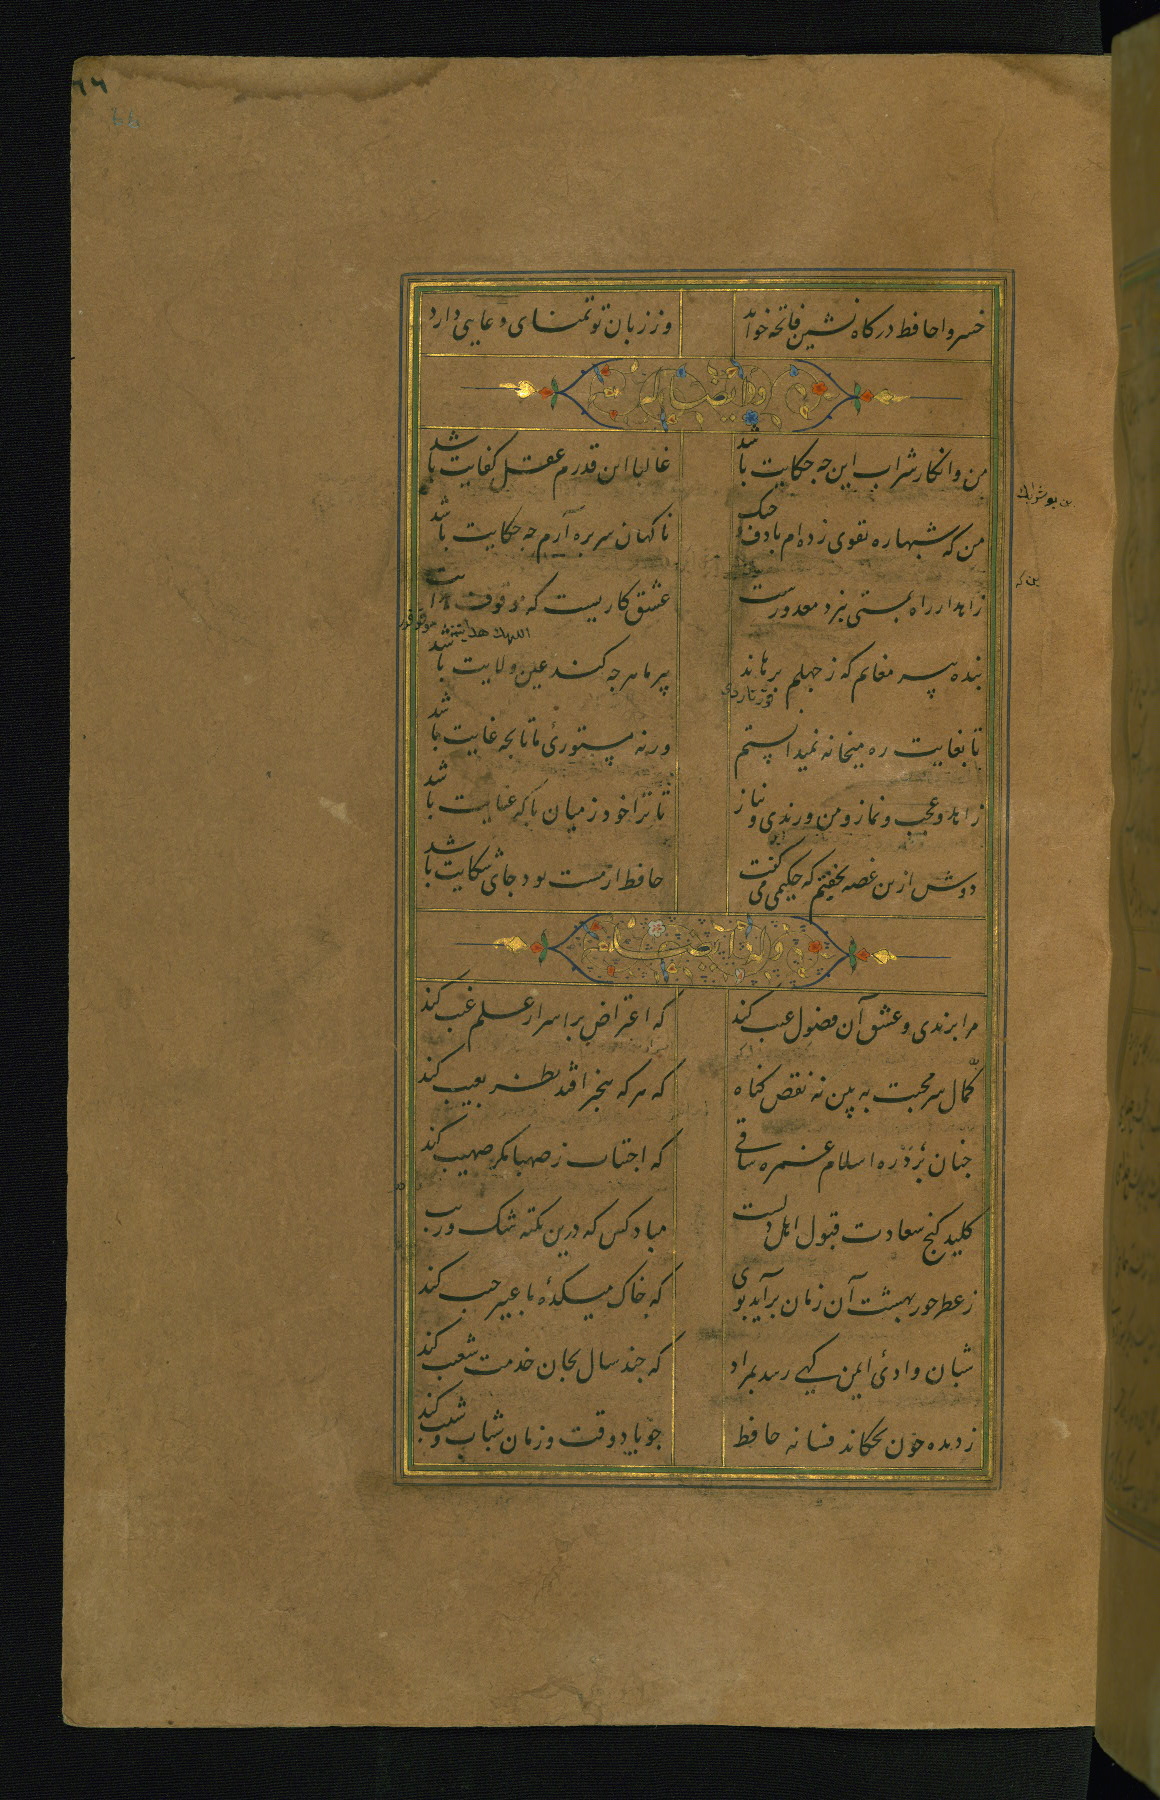 ٦٦
خسروا حافظ درگاه نشین فاتحه خواند وز زبان تو تمنای دعایی دارد
وله ایضا
من وانکار شراب این چه حکایت باشد غالبا این قدرم عقل کفایت باشد
من که شبها ره تقوی زده‌ام با دف و چنگ ناگهان سر بره آرم چه حکایت باشد
زاهد ار راه بمستی نبرد معذورست عشق کاریست که موقوف هدایت
اللهك هدایتنه موقوفدر
بنده پیر مغانم که ز جهلم برهاند پیر ما هر چه کند عین ولایت باشد
تا بغایت ره میخانه نمیدانستم ورنه مستوری ما تا بچه غایت باشد
زاهد و عجب و نماز و من و رندی و نیاز تا ترا خود ز میان با که عنایت باشد
دوش ازین غصه نخفتم که حکیمی می گفت حافظ ار مست بود جای شکایت باشد
وله ایضا
مرا برندی و عشق آن فضول عیب کند که اعتراض بر اسرار علم غیب کند
کمال سر محبت به بین نه نقص گناه که هر که بیهنر افتد نظر بعیب کند
چنان بزد ره اسلام غمزه ساقی که اجتناب ز صهبا مگر صهیب کند
کلید گنج سعادت قبول اهل دلست مباد کس که درین نکته شک و ریب
ز عطر حور بهشت آن زمان برآید بوی که خاک میکدهٔ ما عبیر جیب کند
شبان وادئ ایمن گهی رسد بمراد که چند سال بجان خدمت شعیب کند
ز دیده خون بچکاند فسانه حافظ چو یاد وقت و زمان شباب و شیب کند